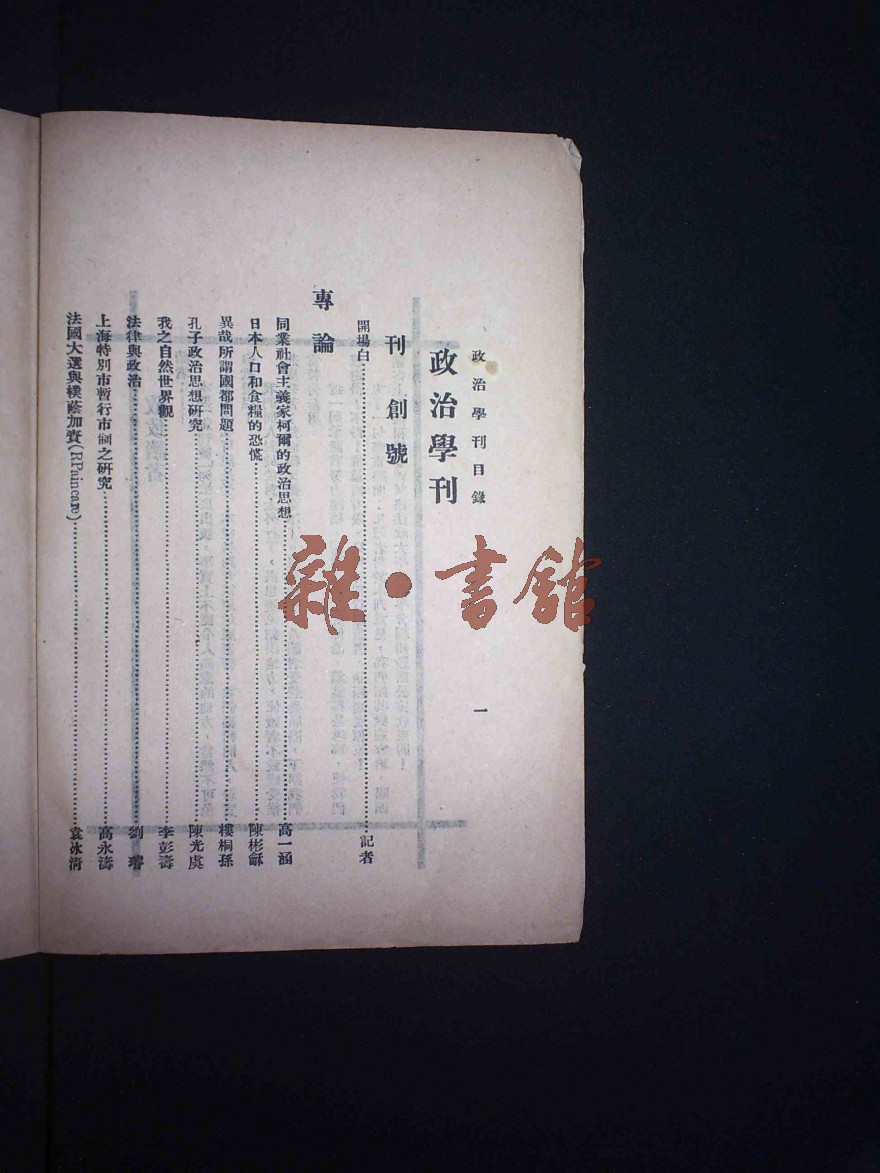 政治學刊目錄
一
政治學刊
刊創號
開場白……記者
專論
同業社會主義家柯爾的政治思想……高一涵
日本人口和食糧的恐慌……陳彬龢
異哉所謂國都問題……樓桐孫
孔子政治思想研究……陳光虞
我之自然世界觀……李彭濤
法律與政治……劉瑢
上海特別市暫行市制之研究……高永濤
法國大選與樸蔭加賚(RPaincare)……袁冰淸
雜·書館